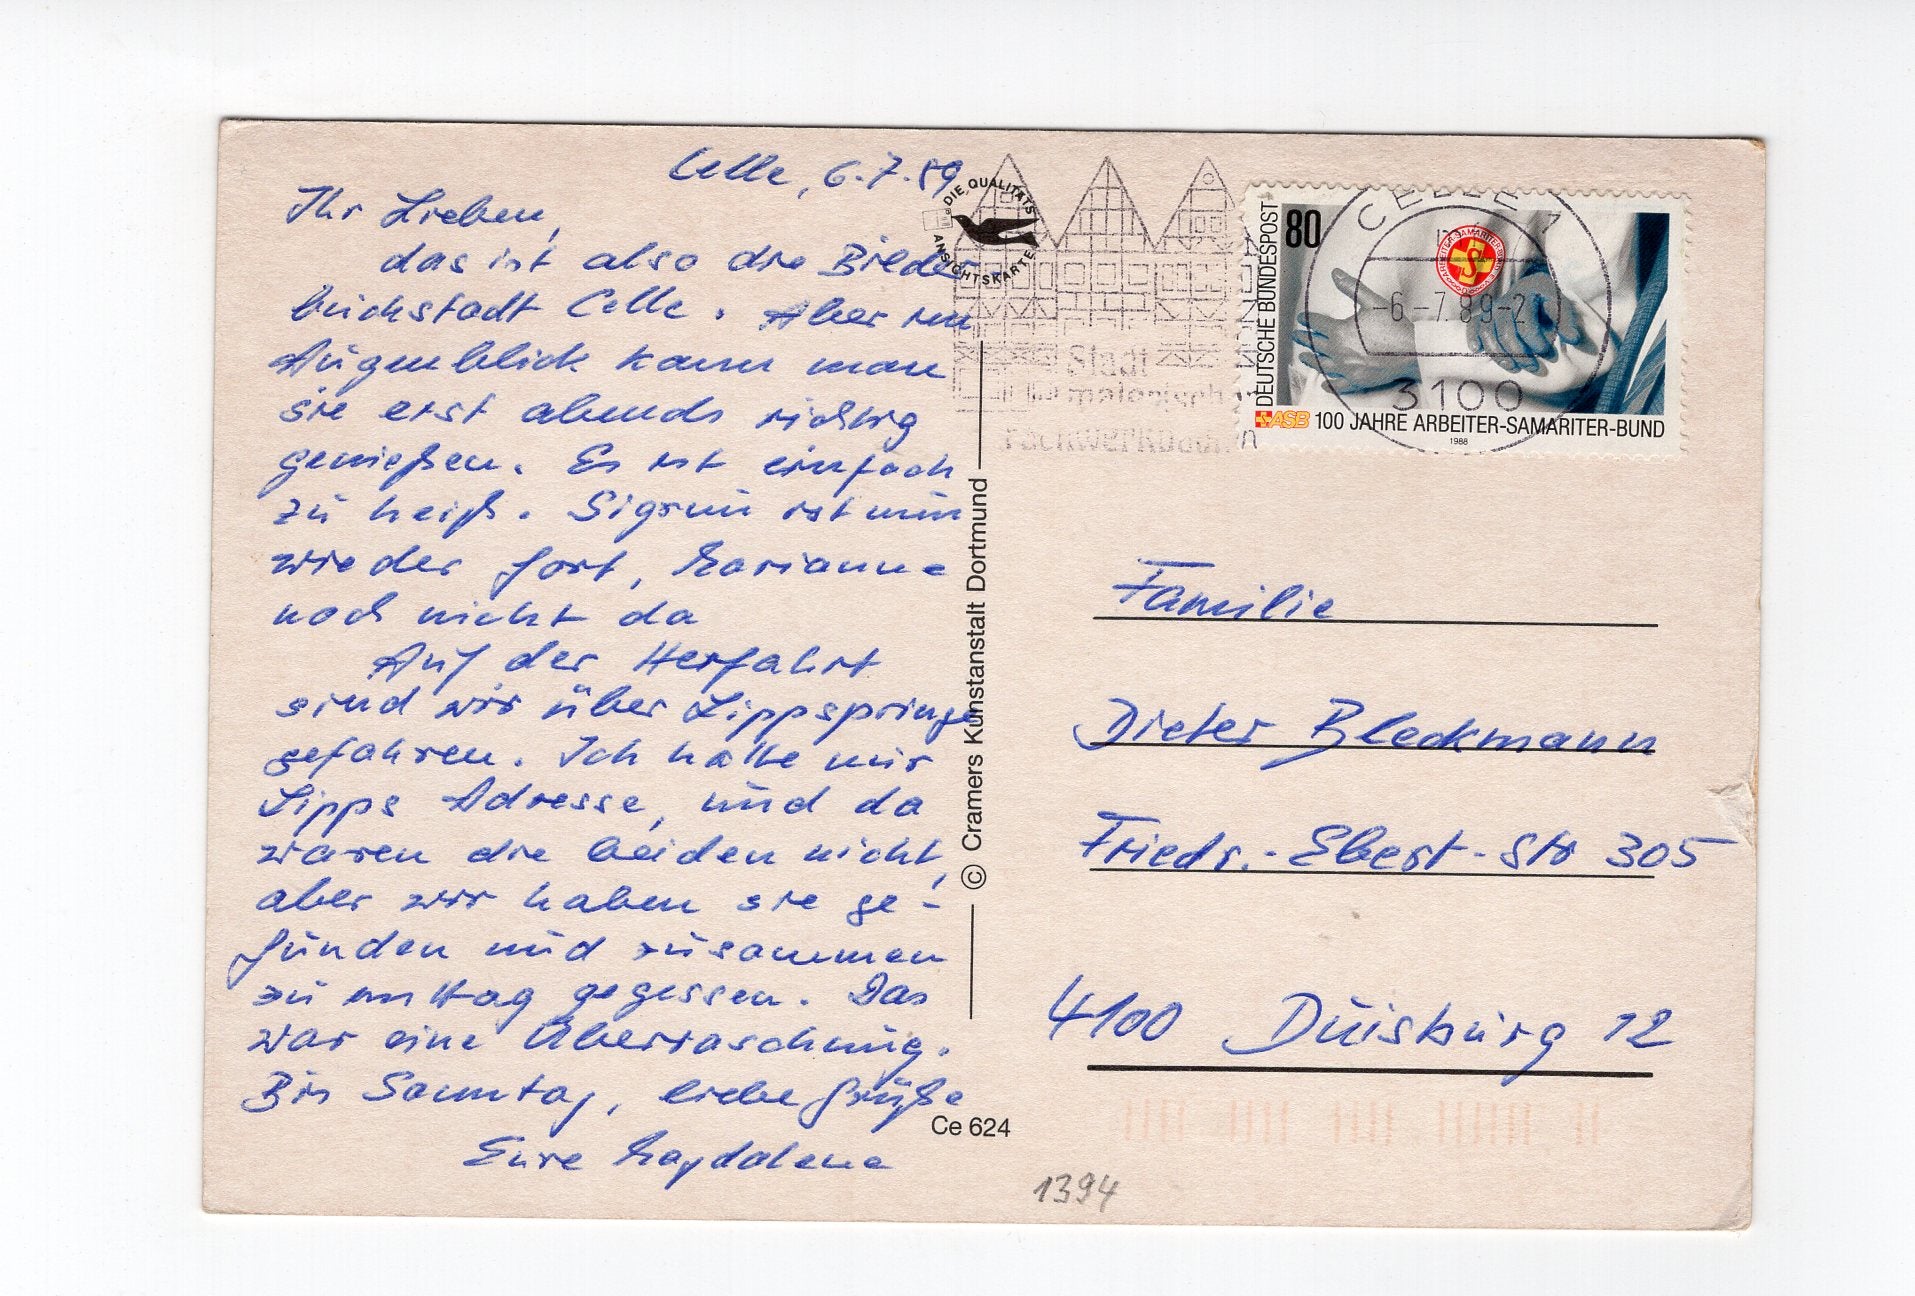 Celle, 6.7.89
Ihr Lieben,
das ist also die Bilder
buchstadt Celle. Aber im
Augenblick kann man
sie erst abends richtig
genießen. Es ist einfach
zu heiß. Sigrun ist nun
wieder fort, Marianne
noch nicht da
Auf der Herfahrt
sind wir über Lippspringe
gefahren. Ich hatte mir
Lipps Adresse, und da
waren die beiden nicht,
aber wir haben sie ge-
funden und zusammen
zu mittag gegessen. Das
war eine Überraschung.
Bis Sonntag, liebe Grüße
Eure Magdalena
DIE QUALITÄTS
ANSICHTSKARTE
Stadt
malerischer
Fachwerkbauten
CELLE 1
-6.-7.89-2
3100
80
DEUTSCHE BUNDESPOST
ASB 100 JAHRE ARBEITER-SAMARITER-BUND
1988
© Cramers Kunstanstalt Dortmund
Familie
Dieter Bleckmann
Friedr.-Ebert-Str 305
4100 Duisburg 12
Ce 624
1394